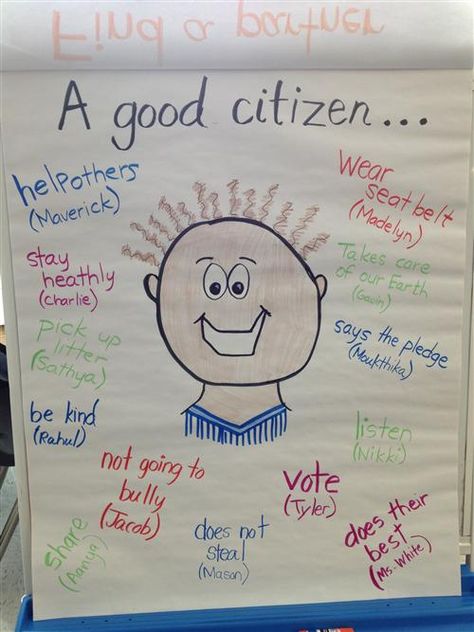 Find a partner
A good citizen...
help others
(Maverick)
Wear
seatbelt
(Madelyn)
stay
heathly
(Charlie)
Takes care
of our Earth
(Gavin)
pick up
litter
(Sathya)
says the pledge
(Moukthika)
be kind
(Rahul)
listen
(Nikki)
not going to
bully
(Jacob)
vote
(Tyler)
share
(Aanya)
does not
steal
(Mason)
does their
best
(Ms. White)